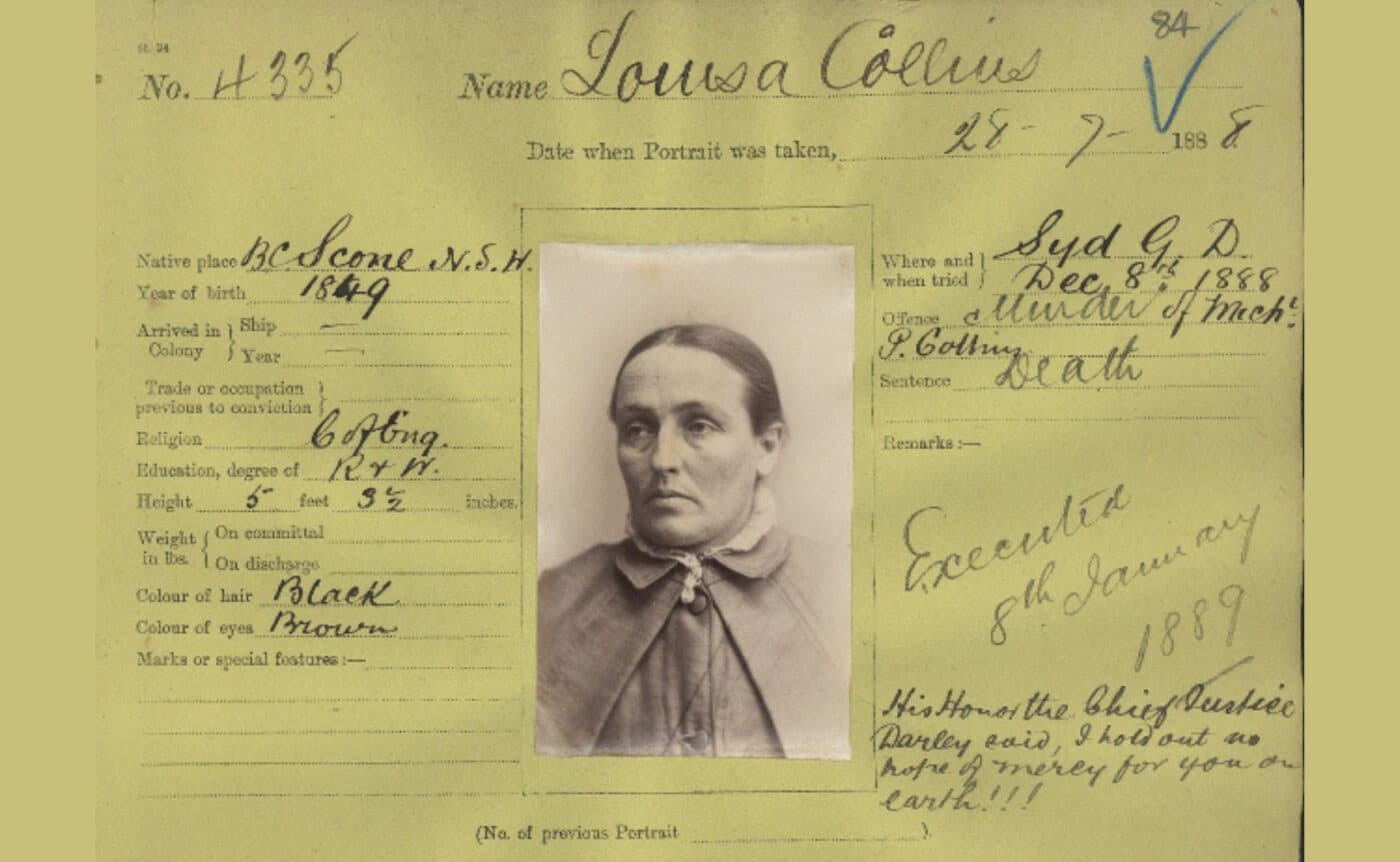 84
St. 24
No. 4335 Name Louisa Collins
Date when Portrait was taken, 28-7-1888
Native place B.C. Scone N.S.W.
Year of birth 1849
Arrived in Colony } Ship —
Year —
Trade or occupation
previous to conviction }
Religion C of Eng.
Education, degree of R & W.
Height 5 feet 3½ inches.
Weight in lbs. { On committal
On discharge
Colour of hair Black
Colour of eyes Brown
Marks or special features:—
Where and when tried } Syd G. D.
Dec. 8th. 1888
Offence Murder of Michl.
P. Collins
Sentence Death
Remarks:—
Executed
8th January
1889
His Honor the Chief Justice
Darley said, I hold out no
hope of mercy for you on
earth!!!
(No. of previous Portrait ).